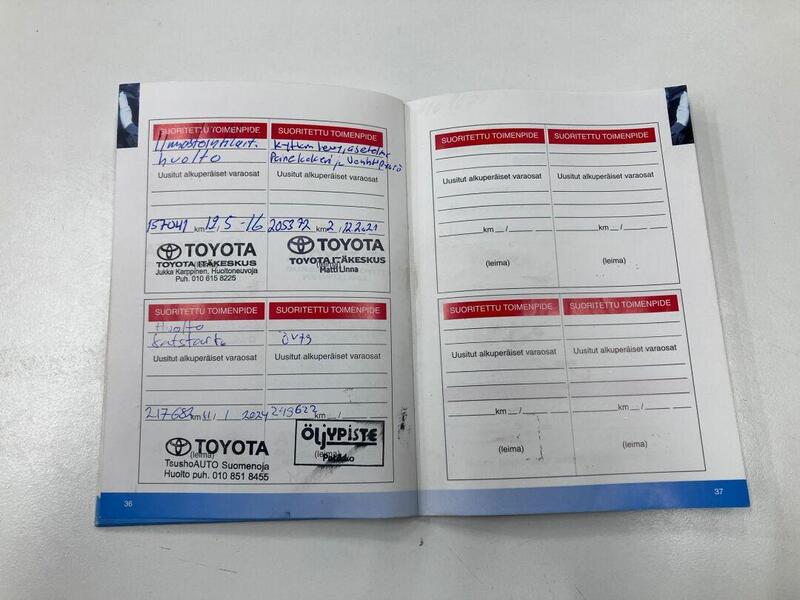 SUORITETTU TOIMENPIDE
huolto
Uusitut alkuperäiset varaosat
157041 km 19/5 -16
TOYOTA
TOYOTA ITÄKESKUS
(leima)
Jukka Karppinen, Huoltoneuvoja
Puh. 010 615 8225
SUORITETTU TOIMENPIDE
Kytkin levy, asetelma
Uusitut alkuperäiset varaosat
205372 km 2/12.2021
TOYOTA
TOYOTA ITÄKESKUS
(leima)
Matti Linna
SUORITETTU TOIMENPIDE
Huolto
Katstart
Uusitut alkuperäiset varaosat
217683 km 11/1 2024
TOYOTA
(leima)
TsushoAUTO Suomenoja
Huolto puh. 010 851 8455
SUORITETTU TOIMENPIDE
Uusitut alkuperäiset varaosat
km /
ÖLJYPISTE
(leima)
36
SUORITETTU TOIMENPIDE
Uusitut alkuperäiset varaosat
km /
(leima)
SUORITETTU TOIMENPIDE
Uusitut alkuperäiset varaosat
km /
(leima)
SUORITETTU TOIMENPIDE
Uusitut alkuperäiset varaosat
km /
(leima)
SUORITETTU TOIMENPIDE
Uusitut alkuperäiset varaosat
km /
(leima)
37